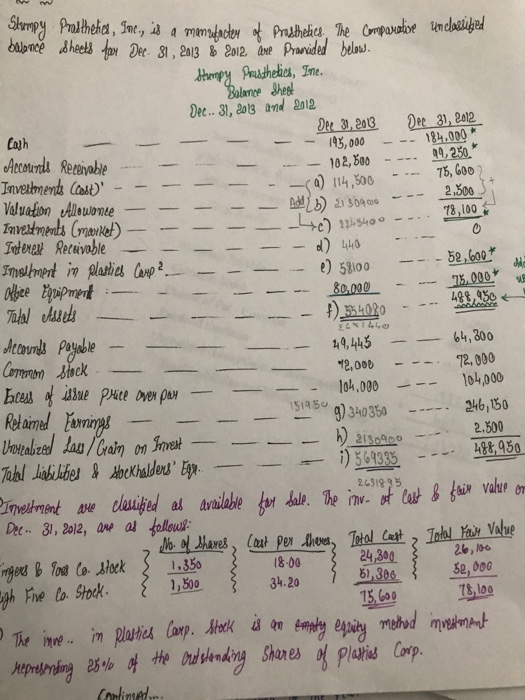 Stumpy Prosthetics, Inc., is a manufacter of Prosthetics. The Comparative unclassified
balance sheets for Dec. 31, 2013 & 2012 are Provided below.
Stumpy Prosthetics, Inc.
Balance Sheet
Dec.. 31, 2013 and 2012
Dec 31, 2013 Dec 31, 2012
Cash 195,000 184,000*
Accounts Receivable 102,500 99,250*
Investments (cost)' a) 114,500 75,600
Valuation Allowance Add b) 2130900 2,500 +
Investments (market) c) 2245400 78,100*
Interest Receivable d) 440 0
Investment in plastics Corp² e) 58100 52,600*
Office Equipment 80,000 75,000*
Total Assets f) 554080 488,950
2681440
Accounts Payable 49,445 64,300
Common Stock 72,000 72,000
Excess of issue Price over par 104,000 104,000
Retained Earnings 151950 g) 340350 246,150
Unrealized Loss / Gain on Invest h) 2130900 2.500
Total Liabilities & Stockholders' Eqy. i) 569335 488,950
2651895
Investment are classified as available for Sale. The inv. at Cost & fair value on
Dec.. 31, 2012, are as follows:
No. of Shares Cost per Shares Total Cost Total Fair Value
ingers & Toes Co. Stock 1.350 18.00 24,300 26,100
igh Five Co. Stock. 1,500 34.20 51,300 52,000
75,600 78,100
The inve.. in Plastics Corp. Stock is an empty equity method investment
representing 25% of the Outstanding Shares of Plastics Corp.
Continued....